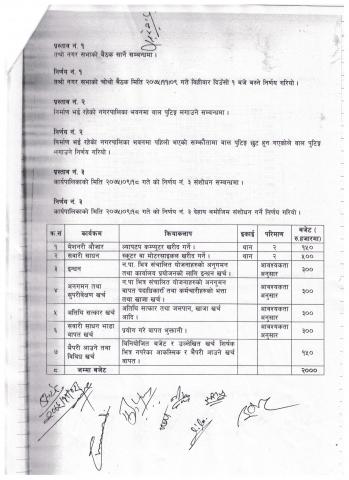 प्रस्ताव नं. १
तथो नगर सभाको बैठक सार्ने सम्बन्धमा ।
निर्णय नं. १
तश्रो नगर सभाको चौथो बैठक मिति २०७५/११/०९ गते बिहीवार दिउँसो १ बजे बस्ने निर्णय गरियो ।
प्रस्ताव नं. २
निर्माण भई रहेको नगरपालिका भवनमा वाल पुटिङ्ग लगाउने सम्बन्धमा ।
निर्णय नं. २
निर्माण भई रहेको नगरपालिका भवनमा पहिली भएको सम्झौतामा वाल पुटिङ्ग छुट हुन गएकोले वाल पुटिङ्ग
लगाउने निर्णय गरियो ।
प्रस्ताव नं. ३
कार्यपालिकाको मिति २०७५/०९/१८ गते को निर्णय नं. ३ संशोधन सम्बन्धमा ।
निर्णय नं. ३
कार्यपालिकाको मिति २०७५/०९/१८ गतेको निर्णय नं. ३ देहाय बमोजिम संशोधन गर्ने निर्णय गरियो ।
क.सं कार्यक्रम क्रियाकलाप इकाई परिमाण बजेट ( रु.हजारमा)
१ मेशनरी औजार ल्यापटप कम्प्युटर खरीद गर्ने । थान २ १५०
२ सवारी साधन स्कुटर वा मोटरसाइकल खरीद गर्ने । थान २ ५००
३ इन्धन न.पा. भित्र संचालित योजनाहरुको अनुगमन तथा कार्यालय प्रयोजनको लागि इन्धन खर्च । आवश्यकता अनुसार ३००
४ अनगमन तथा सुपरीवेक्षण खर्च न.पा भित्र संचालित योजनाहरुको अनगमन बापत पदाधिकारी तथा कर्मचारीहरुको भत्ता तथा खाजा खर्च । आवश्यकता अनुसार ३००
५ अतिथि सत्कार खर्च अतिथि सत्कार तथा जलपान, खाजा खर्च आदि । आवश्यकता अनुसार ३००
६ सवारी साधन भाडा बापत खर्च प्रयोग गरे बापत भुक्तानी । आवश्यकता अनुसार ३००
७ भैपरी आउने तथा विविध खर्च विनियोजित बजेट र उल्लेखित खर्च शिर्षक भित्र नपरेका आकस्मिक र भैपरी आउने खर्च बापत । १५०
८ जम्मा बजेट २०००